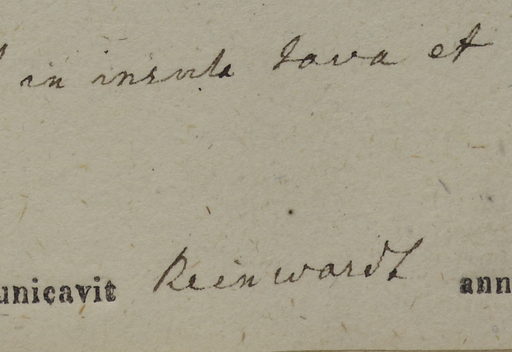 in insula Java et
unicavit Reinwardt ann